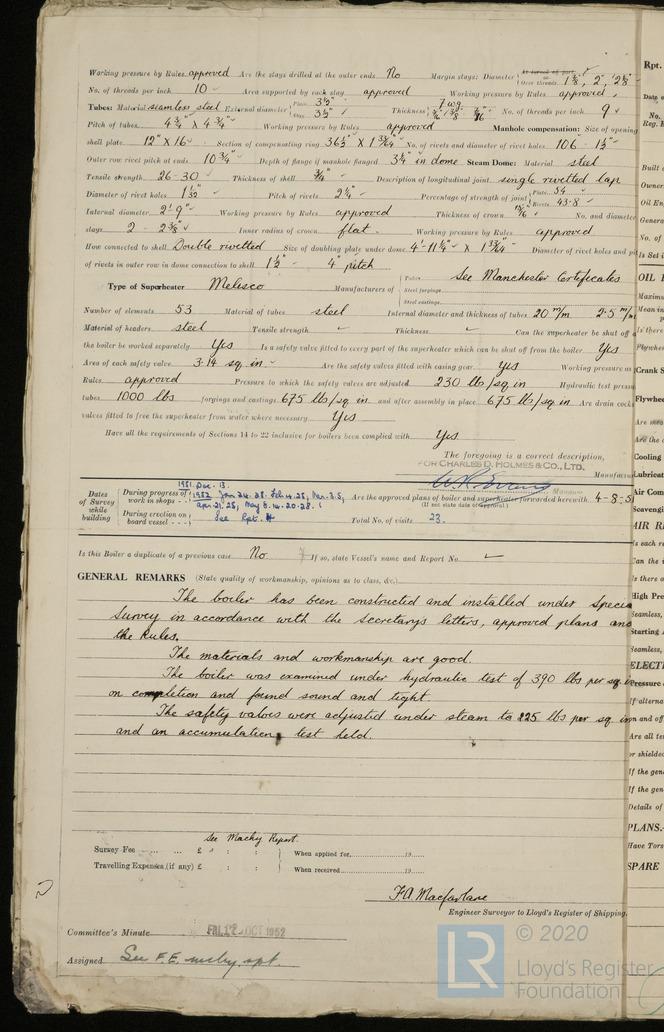 Working pressure by Rules approved Are the stays drilled at the outer ends No Margin stays: Diameter { At turned off part, or Over threads 1 3/8", 2", 2 1/8"
No. of threads per inch 10 Area supported by each stay approved Working pressure by Rules approved
Tubes: Material seamless steel External diameter { Plain 3 1/2" Stay 3 1/2" Thickness { 7 wg No. of threads per inch 9
Pitch of tubes 4 3/4" X 4 3/4" Working pressure by Rules approved Manhole compensation: Size of opening
shell plate 12" X 16 Section of compensating ring No. of rivets and diameter of rivet holes 106 - 1 1/2"
Outer row rivet pitch at ends 10 3/4" Depth of flange if manhole flanged 3 3/4" in dome Steam Dome: Material steel
Tensile strength 26-30 Thickness of shell 3/4" Description of longitudinal joint single rivetted lap
Diameter of rivet holes 1 1/32" Pitch of rivets 2 1/4" Percentage of strength of joint { Plate 54 Rivets 43.8
Internal diameter 2'-9" Working pressure by Rules approved Thickness of crown 15/16" No. and diameter
stays 2 - 2 3/8" Inner radius of crown flat. Working pressure by Rules approved
How connected to shell Double rivetted Size of doubling plate under dome 4'-11 1/4" X 1 33/64" Diameter of rivet holes and pi
of rivets in outer row in dome connection to shell 1 1/2" - 4" pitch
Type of Superheater Melesco Manufacturers of { Tubes See Manchester Certificates
Steel forgings
Steel castings
Number of elements 53 Material of tubes steel Internal diameter and thickness of tubes 20 m/m 2.5 m/m
Material of headers steel Tensile strength Thickness Can the superheater be shut off a
the boiler be worked separately Yes Is a safety valve fitted to every part of the superheater which can be shut off from the boiler Yes
Area of each safety valve 3.14 sq. in. Are the safety valves fitted with easing gear Yes Working pressure as
Rules approved Pressure to which the safety valves are adjusted 230 lb/sq.in Hydraulic test pressu
tubes 1000 lbs forgings and castings 675 lbs/sq in and after assembly in place 675 lbs/sq in Are drain cocks
valves fitted to free the superheater from water where necessary Yes
Have all the requirements of Sections 14 to 22 inclusive for boilers been complied with Yes
The foregoing is a correct description,
FOR CHARLES D. HOLMES & CO., LTD.
Manufactu
Dates of Survey while building
During progress of work in shops - - 1951. Dec. 13. 1952 Jan 24.28. Feb 14.25, Mar. 3.5, Apr. 21.25, May 8.14.20.28.
During erection on board vessel - - - See Rpt. 4
Are the approved plans of boiler and superheater forwarded herewith 4-8-51
(If not state date of approval.)
Total No. of visits 23.
Is this Boiler a duplicate of a previous case No If so, state Vessel's name and Report No.
GENERAL REMARKS (State quality of workmanship, opinions as to class, &c.)
The boiler has been constructed and installed under Specia
Survey in accordance with the Secretary's letters, approved plans and
the Rules.
The materials and workmanship are good.
The boiler was examined under hydraulic test of 390 lbs per sq. in
on completion and found sound and tight.
The safety valves were adjusted under steam to 225 lbs per sq. in
and an accumulation test held.
See Machy Report.
Survey Fee ... ... ... £ " : : When applied for, 19
Travelling Expenses (if any) £ : : When received 19
F.A. Macfarlane
Engineer Surveyor to Lloyd's Register of Shipping.
Committee's Minute FRI. 17 OCT 1952
Assigned See F.E. mchy. rpt.
LR © 2020
Lloyd's Register
Foundation
Rpt.
Date o
No.
Reg. B
Built
Owner
Oil En
Genera
No. of
Is Set i
OIL
Maximu
Mean in
Is there
Flywhee
Crank S
Flywhee
Are mea
Are the
Cooling
Lubricat
Air Com
Scavengi
AIR R
Is each re
Can the i
Is there a
High Pre
Seamless,
Starting
Seamless,
ELECT
Pressure
If alterna
on and off
Are all te
or shielded
If the gene
If the gen
Details of
PLANS.
Have Tors
SPARE